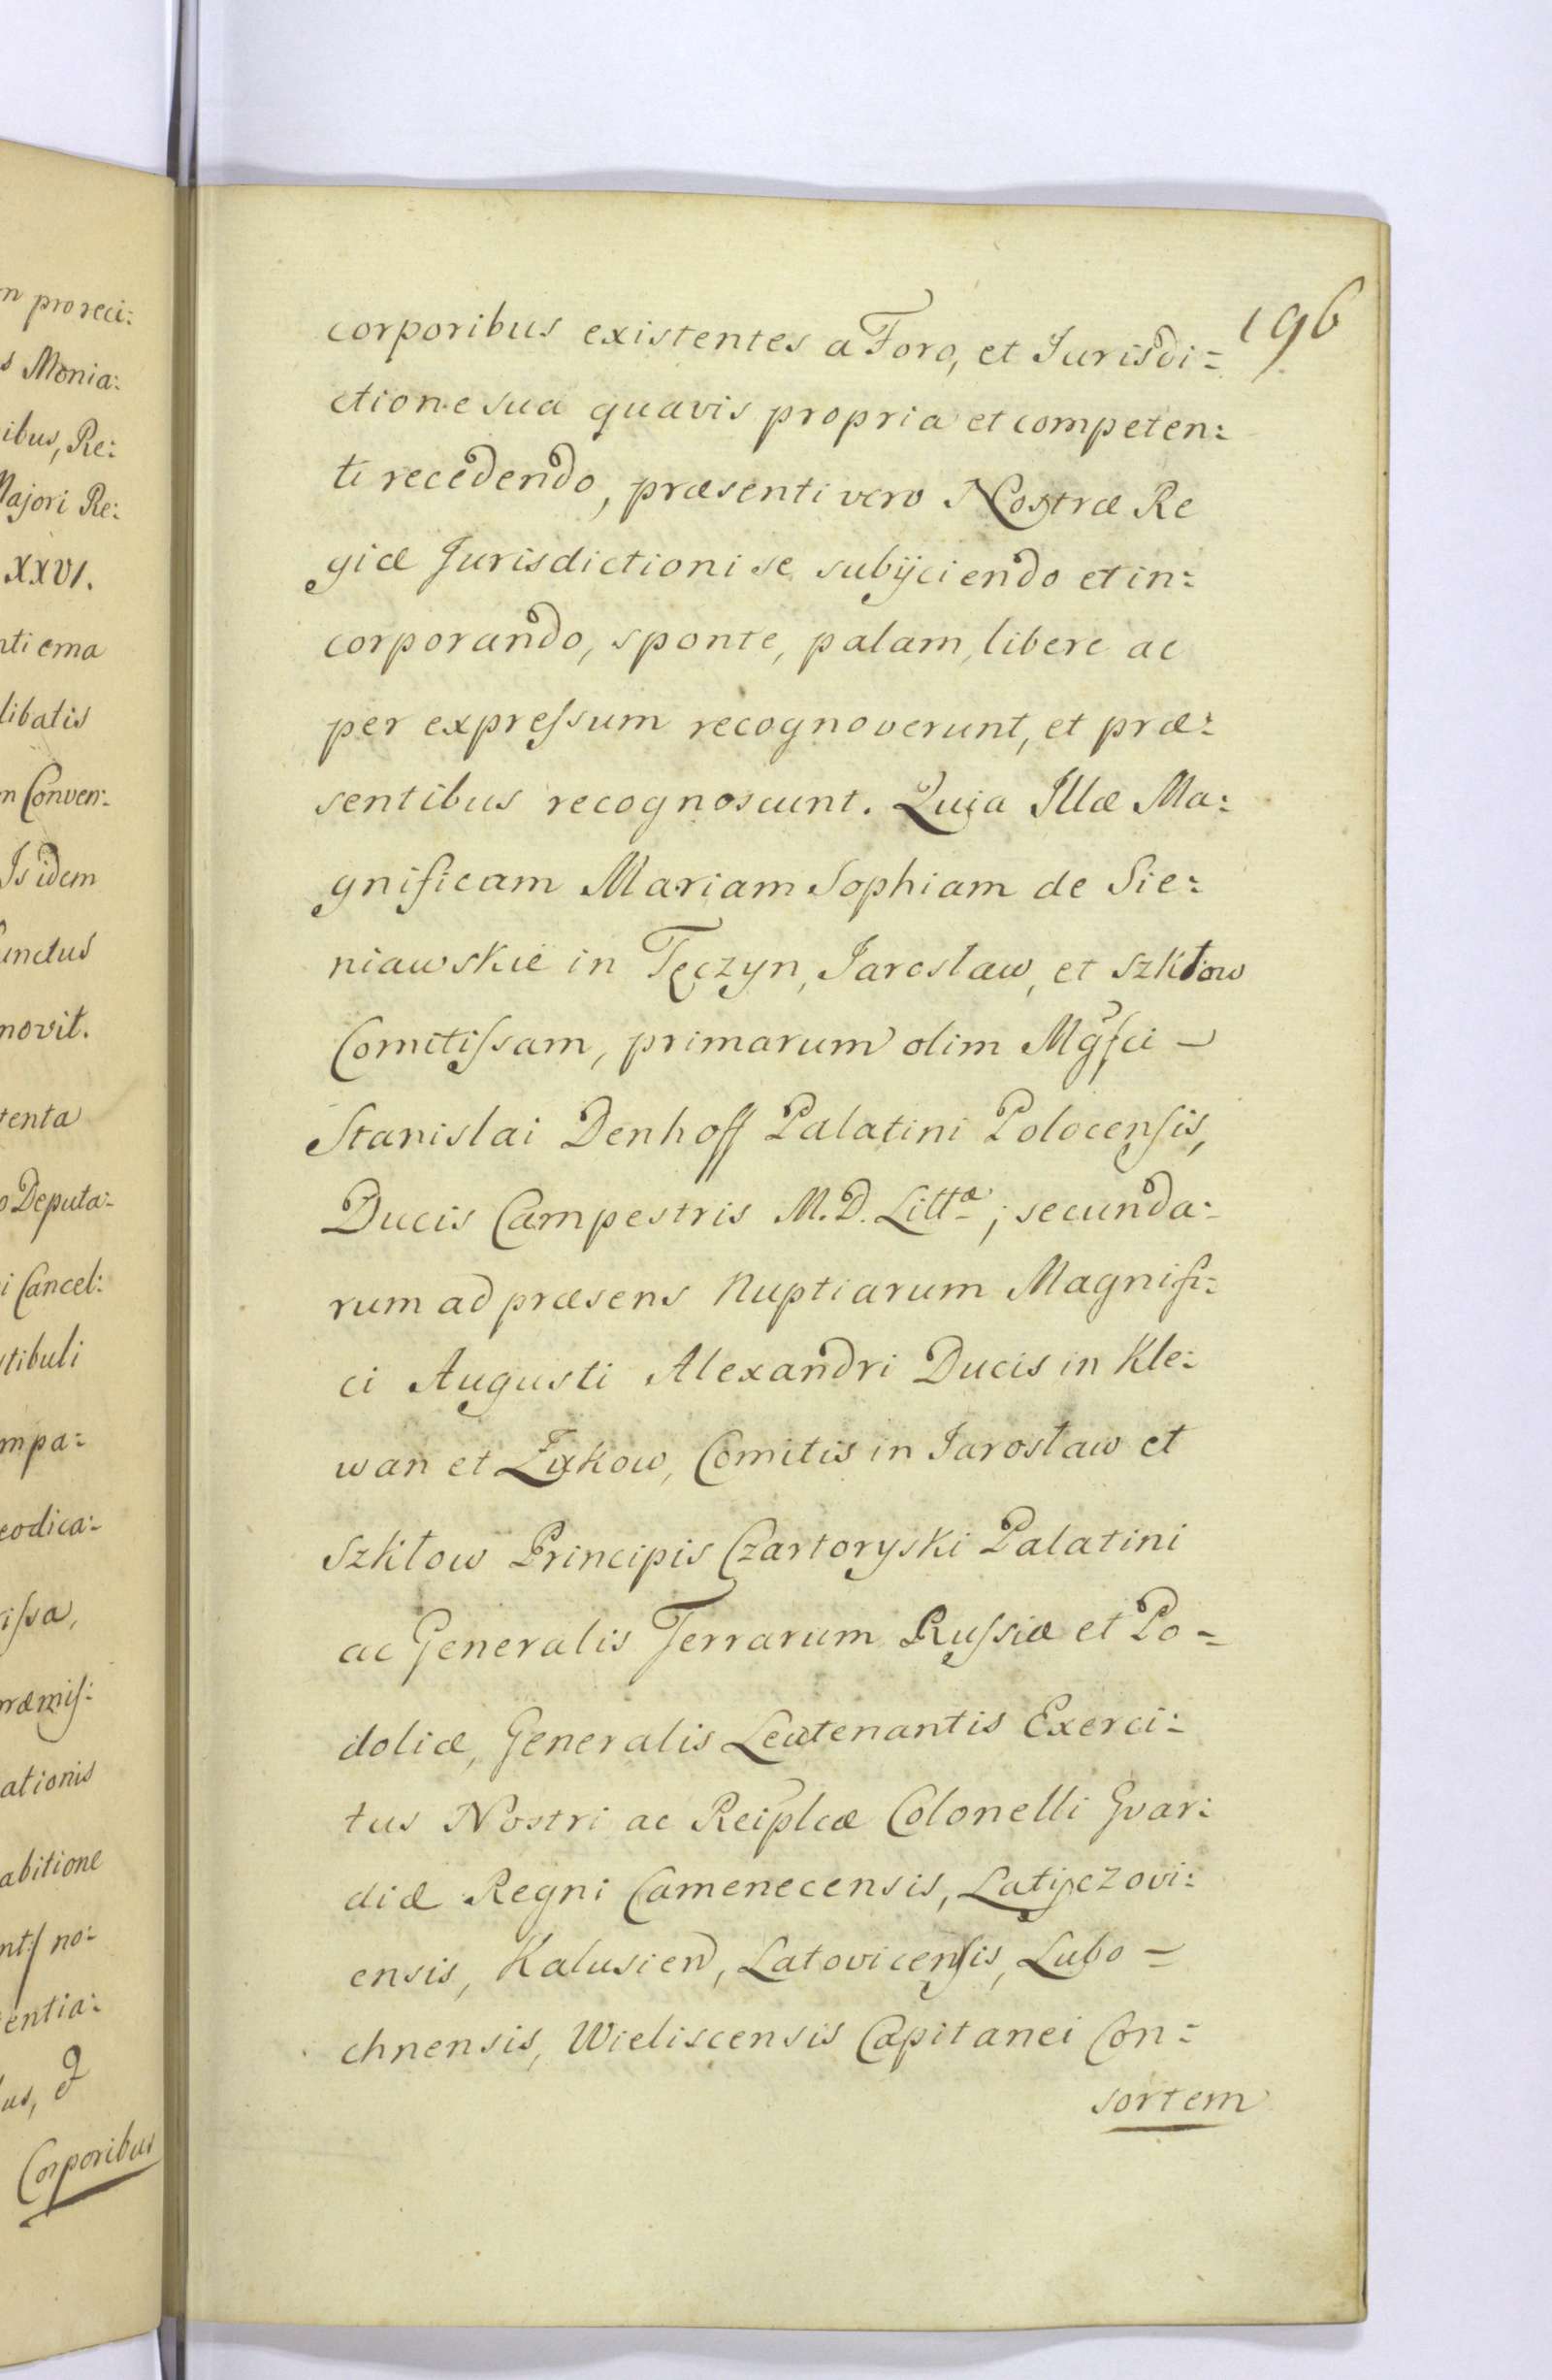 n pro reci:
s Monia:
ibus, Re:
Majori Re:
XXVI.
nti ema
libatis
n Conven:
Is idem
unctus
novit.
tenta
o Deputa:
i Cancel:
tibuli
mpa:
eodica:
issa,
ræmis:
ationis
abitione
no:
entia:
us, &
Corporibus
196
corporibus existentes a Foro, et Jurisdi=
ctione sua quavis propria et competen:
ti recedendo, præsenti vero Nostræ Re
giæ Jurisdictioni se subÿciendo et in:
corporando, sponte, palam, libere ac
per expressum recognoverunt, et præ:
sentibus recognoscunt. Quia Illæ Ma:
gnificam Mariam Sophiam de Sie:
niawskie in Tęczyn, Jarosław, et Szkłow
Comitissam, primarum olim Mgfci –
Stanislai Denhoff Palatini Polocensis,
Ducis Campestris M. D. Littæ; secunda:
rum ad præsens Nuptiarum Magnifi:
ci Augusti Alexandri Ducis in Kle:
wan et Żukow, Comitis in Jarosław et
Szkłow Principis Czartoryski Palatini
ac Generalis Terrarum Russiæ et Po=
doliæ, Generalis Leutenantis Exerci:
tus Nostri ac Reiplcæ Colonelli Gvar:
diæ Regni Camenecensis, Latyczovi:
ensis, Kalusien, Latovicensis, Lubo=
chnensis, Wieliscensis Capitanei Con=
sortem